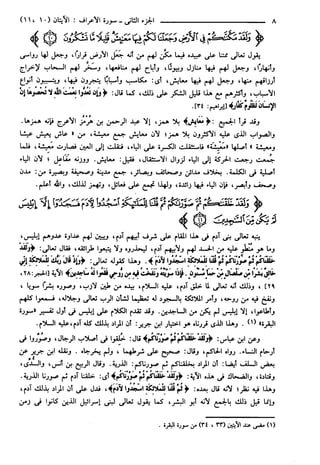 ٨ الجزء الثاني - سورة الأعراف: الآيتان (١٠، ١١)
﴿وَلَقَدْ مَكَّنَّاكُمْ فِي الْأَرْضِ وَجَعَلْنَا لَكُمْ فِيهَا مَعَايِشَ قَلِيلًا مَا تَشْكُرُونَ
﴾
يقول تعالى ممتنا على عبيده فيما مكن لهم من أنه جعل الأرض قرارًا، وجعل لها رواسي
وأنهارًا، وجعل لهم فيها منازل وبيوتًا، وأباح لهم منافعها، وسخَّر لهم السحاب لإخراج
أرزاقهم منها، وجعل لهم فيها معايش، أي: مكاسب وأسبابًا يتجرون فيها، ويتسببون أنواع
الأسباب، وأكثرهم مع هذا قليل الشكر على ذلك، كما قال: ﴿وَإِن تَعُدُّوا نِعْمَتَ اللَّهِ لَا تُحْصُوهَا إِنَّ
الْإِنسَانَ لَظَلُومٌ كَفَّارٌ﴾ [إبراهيم: ٣٤].
وقد قرأ الجميع: ﴿مَعَايِشَ﴾ بلا همز، إلا عبد الرحمن بن هُرْمُز الأعرج فإنه همزها.
والصواب الذي عليه الأكثرون بلا همز؛ لأن معايش جمع معيشة، من ع
عاش يعيش عيشا
ومعيشة، أصلها «مَعْيِشَة» فاستثقلت الكسرة على الياء، فنقلت إلى العين فصارت مَعِيشة، فلما
جمعت رجعت الحركة إلى الياء لزوال الاستثقال، فقيل: معايش. ووزنه مفاعل؛ لأن الياء
أصلية في الكلمة. بخلاف مدائن وصحائف وبصائر، جمع مدينة وصحيفة وبصيرة من: مدن
وصحف وأبصر، فإن الياء فيها زائدة، ولهذا تجمع على فعائل، وتهمز لذلك، والله أعلم.
﴿وَلَقَدْ خَلَقْنَاكُمْ ثُمَّ صَوَّرْنَاكُمْ ثُمَّ قُلْنَا لِلْمَلَائِكَةِ اسْجُدُوا لِآدَمَ فَسَجَدُوا إِلَّا إِبْلِيسَ
لَمْ يَكُن مِّنَ السَّاجِدِينَ﴾
ينبه تعالى بني آدم في هذا المقام على شرف أبيهم آدم، ويبين لهم عداوة عدوهم إبليس،
وما هو منطو عليه من الحسد لهم ولأبيهم آدم، ليحذروه ولا يتبعوا طرائقه، فقال تعالى: ﴿وَلَقَدْ
خَلَقْنَاكُمْ ثُمَّ صَوَّرْنَاكُمْ ثُمَّ قُلْنَا لِلْمَلَائِكَةِ اسْجُدُوا لِآدَمَ﴾، وهذا كقوله تعالى: ﴿وَإِذْ قَالَ رَبُّكَ لِلْمَلَائِكَةِ إِنِّي
خَالِقٌ بَشَرًا مِّن صَلْصَالٍ مِّنْ حَمَإٍ مَّسْنُونٍ. فَإِذَا سَوَّيْتُهُ وَنَفَخْتُ فِيهِ مِن رُّوحِي فَقَعُوا لَهُ سَاجِدِينَ﴾ الآية [الحجر: ٢٨،
٢٩]، وذلك أنه تعالى لما خلق آدم، عليه السلام، بيده من طين لازب، وصوره بشرًا سويا،
ونفخ فيه من روحه، وأمر الملائكة بالسجود له تعظيما لشأن الرب تعالى وجلاله، فسمعوا كلهم
وأطاعوا، إلا إبليس لم يكن من الساجدين. وقد تقدم الكلام على إبليس في أول تفسير «سورة
البقرة» (١). وهذا الذي قررناه هو اختيار ابن جرير: أن المراد بذلك كله آدم، عليه السلام.
وعن ابن عباس: ﴿وَلَقَدْ خَلَقْنَاكُمْ ثُمَّ صَوَّرْنَاكُمْ﴾ قال: خُلِقوا في أصلاب الرجال، وصُوِّروا في
أرحام النساء. رواه الحاكم، وقال: صحيح على شرطهما، ولم يخرجاه. ونقله ابن جرير عن
بعض السلف أيضا: أن المراد بخلقناكم ثم صورناكم: الذرية. وقال الربيع بن أنس، والسُّدِّي،
وقتادة، والضحاك في هذه الآية: ﴿وَلَقَدْ خَلَقْنَاكُمْ ثُمَّ صَوَّرْنَاكُمْ﴾ أي: خلقنا آدم ثم صورنا الذرية.
وهذا فيه نظر؛ لأنه قال بعده: ﴿ثُمَّ قُلْنَا لِلْمَلَائِكَةِ اسْجُدُوا لِآدَمَ﴾، فدل على أن المراد بذلك آدم،
وإنما قيل ذلك بالجمع لأنه أبو البشر، كما يقول تعالى لبني إسرائيل الذين كانوا في زمن
(١) مضى عند الآيتين (٣٣، ٣٤) من سورة البقرة.